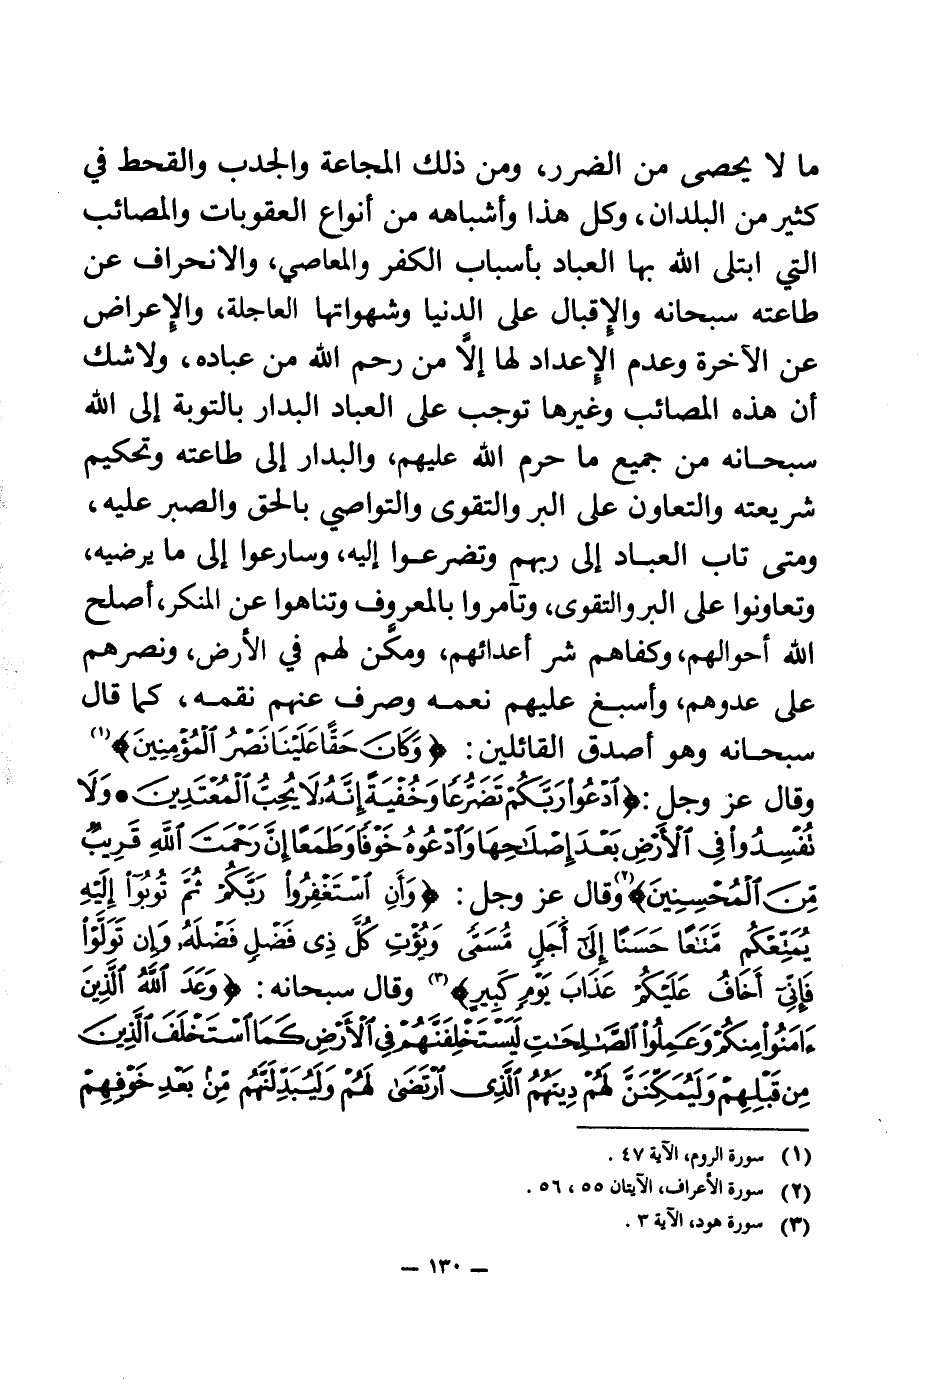 ما لا يحصى من الضرر، ومن ذلك المجاعة والجدب والقحط في
كثير من البلدان، وكل هذا وأشباهه من أنواع العقوبات والمصائب
التي ابتلى الله بها العباد بأسباب الكفر والمعاصي، والانحراف عن
طاعته سبحانه والإقبال على الدنيا وشهواتها العاجلة، والإعراض
عن الآخرة وعدم الإعداد لها إلَّا من رحم الله من عباده، ولاشك
أن هذه المصائب وغيرها توجب على العباد البدار بالتوبة إلى الله
سبحانه من جميع ما حرم الله عليهم، والبدار إلى طاعته وتحكيم
شريعته والتعاون على البر والتقوى والتواصي بالحق والصبر عليه،
ومتى تاب العباد إلى ربهم وتضرعوا إليه، وسارعوا إلى ما يرضيه،
وتعاونوا على البر والتقوى، وتآمروا بالمعروف وتناهوا عن المنكر، أصلح
الله أحوالهم، وكفاهم شر أعدائهم، ومكَّن لهم في الأرض، ونصرهم
على عدوهم، وأسبغ عليهم نعمه وصرف عنهم نقمه، كما قال
سبحانه وهو أصدق القائلين: ﴿وَكَانَ حَقًّا عَلَيْنَا نَصْرُ ٱلْمُؤْمِنِينَ﴾(١)
وقال عز وجل: ﴿ٱدْعُوا۟ رَبَّكُمْ تَضَرُّعًا وَخُفْيَةً إِنَّهُۥ لَا يُحِبُّ ٱلْمُعْتَدِينَ • وَلَا
تُفْسِدُوا۟ فِى ٱلْأَرْضِ بَعْدَ إِصْلَٰحِهَا وَٱدْعُوهُ خَوْفًا وَطَمَعًا إِنَّ رَحْمَتَ ٱللَّهِ قَرِيبٌ
مِّنَ ٱلْمُحْسِنِينَ﴾(٢) وقال عز وجل: ﴿وَأَنِ ٱسْتَغْفِرُوا۟ رَبَّكُمْ ثُمَّ تُوبُوٓا۟ إِلَيْهِ
يُمَتِّعْكُم مَّتَٰعًا حَسَنًا إِلَىٰٓ أَجَلٍ مُّسَمًّى وَيُؤْتِ كُلَّ ذِى فَضْلٍ فَضْلَهُۥ وَإِن تَوَلَّوْا۟
فَإِنِّىٓ أَخَافُ عَلَيْكُمْ عَذَابَ يَوْمٍ كَبِيرٍ﴾(٣) وقال سبحانه: ﴿وَعَدَ ٱللَّهُ ٱلَّذِينَ
ءَامَنُوا۟ مِنكُمْ وَعَمِلُوا۟ ٱلصَّٰلِحَٰتِ لَيَسْتَخْلِفَنَّهُمْ فِى ٱلْأَرْضِ كَمَا ٱسْتَخْلَفَ ٱلَّذِينَ
مِن قَبْلِهِمْ وَلَيُمَكِّنَنَّ لَهُمْ دِينَهُمُ ٱلَّذِى ٱرْتَضَىٰ لَهُمْ وَلَيُبَدِّلَنَّهُم مِّنۢ بَعْدِ خَوْفِهِمْ
(١) سورة الروم، الآية ٤٧.
(٢) سورة الأعراف، الآيتان ٥٥، ٥٦.
(٣) سورة هود، الآية ٣.
– ١٣٠ –